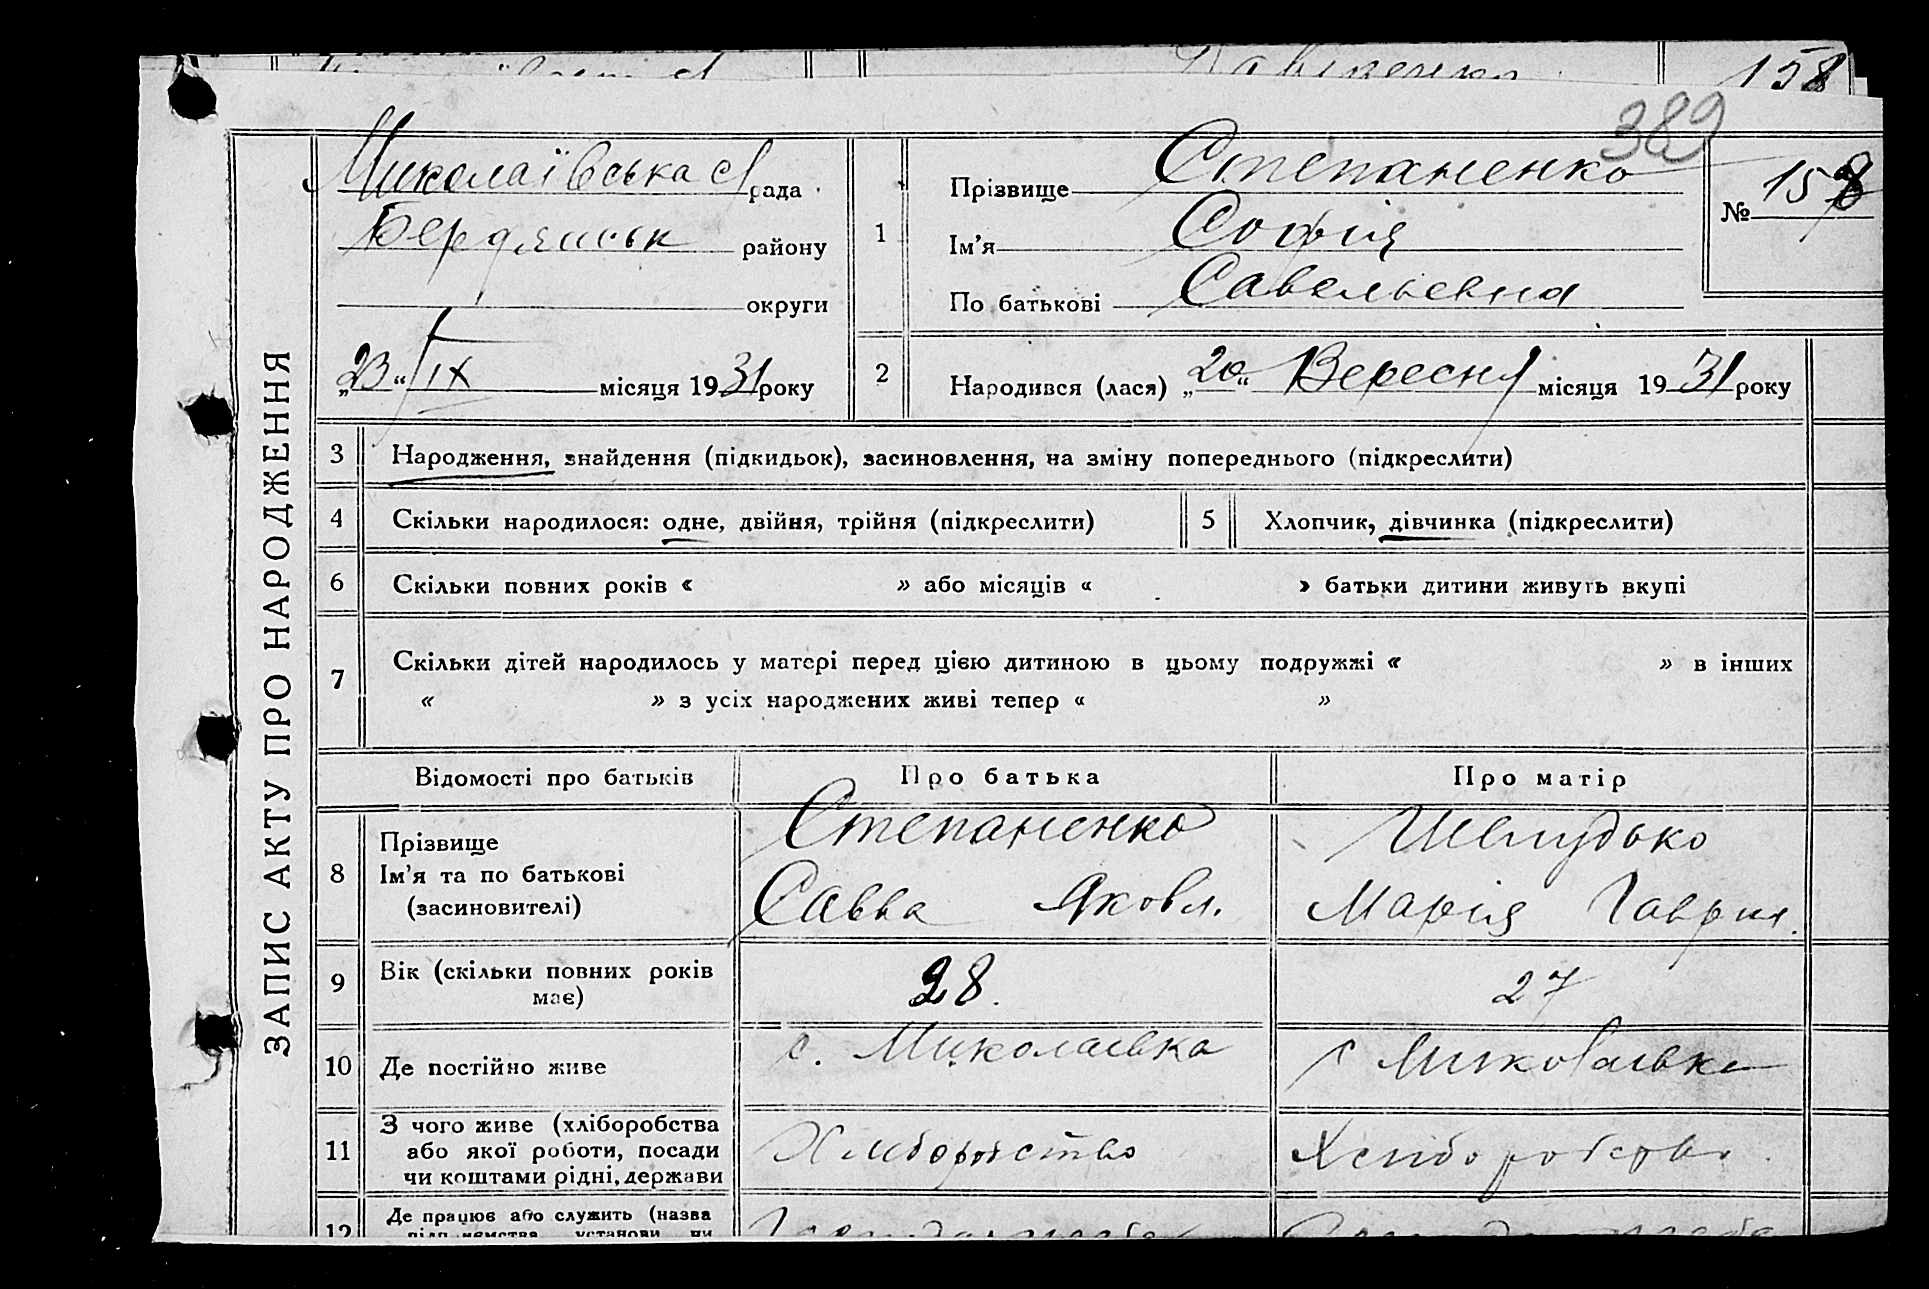 158
389
ЗАПИС АКТУ ПРО НАРОДЖЕННЯ
Миколаївська с/рада
Бердянськ району
округи
„23“ IX місяця 1931 року
1
Прізвище Степаненко
Ім’я Софія
По батькові Савельевна
№ 158
2
Народився (лася) „20“ Вересня місяця 1931 року
3 Народження, знайдення (підкидьок), засиновлення, на зміну попереднього (підкреслити)
4 Скільки народилося: одне, двійня, трійня (підкреслити) 5 Хлопчик, дівчинка (підкреслити)
6 Скільки повних років « » або місяців « » батьки дитини живуть вкупі
7 Скільки дітей народилось у матері перед цією дитиною в цьому подружжі « » в інших
« » з усіх народжених живі тепер « »
Відомості про батьків Про батька Про матір
8
Прізвище
Ім’я та по батькові
(засиновителі)
Степаненко
Савва Яковл.
Шелудько
Марія Гаврил.
9
Вік (скільки повних років
має)
28.
27
10 Де постійно живе с. Миколаївка с Миколаївка
11
З чого живе (хліборобства
або якої роботи, посади
чи коштами рідні, держави
Хліборобство
Хліборобство
12
Де працює або служить (назва
установи чи